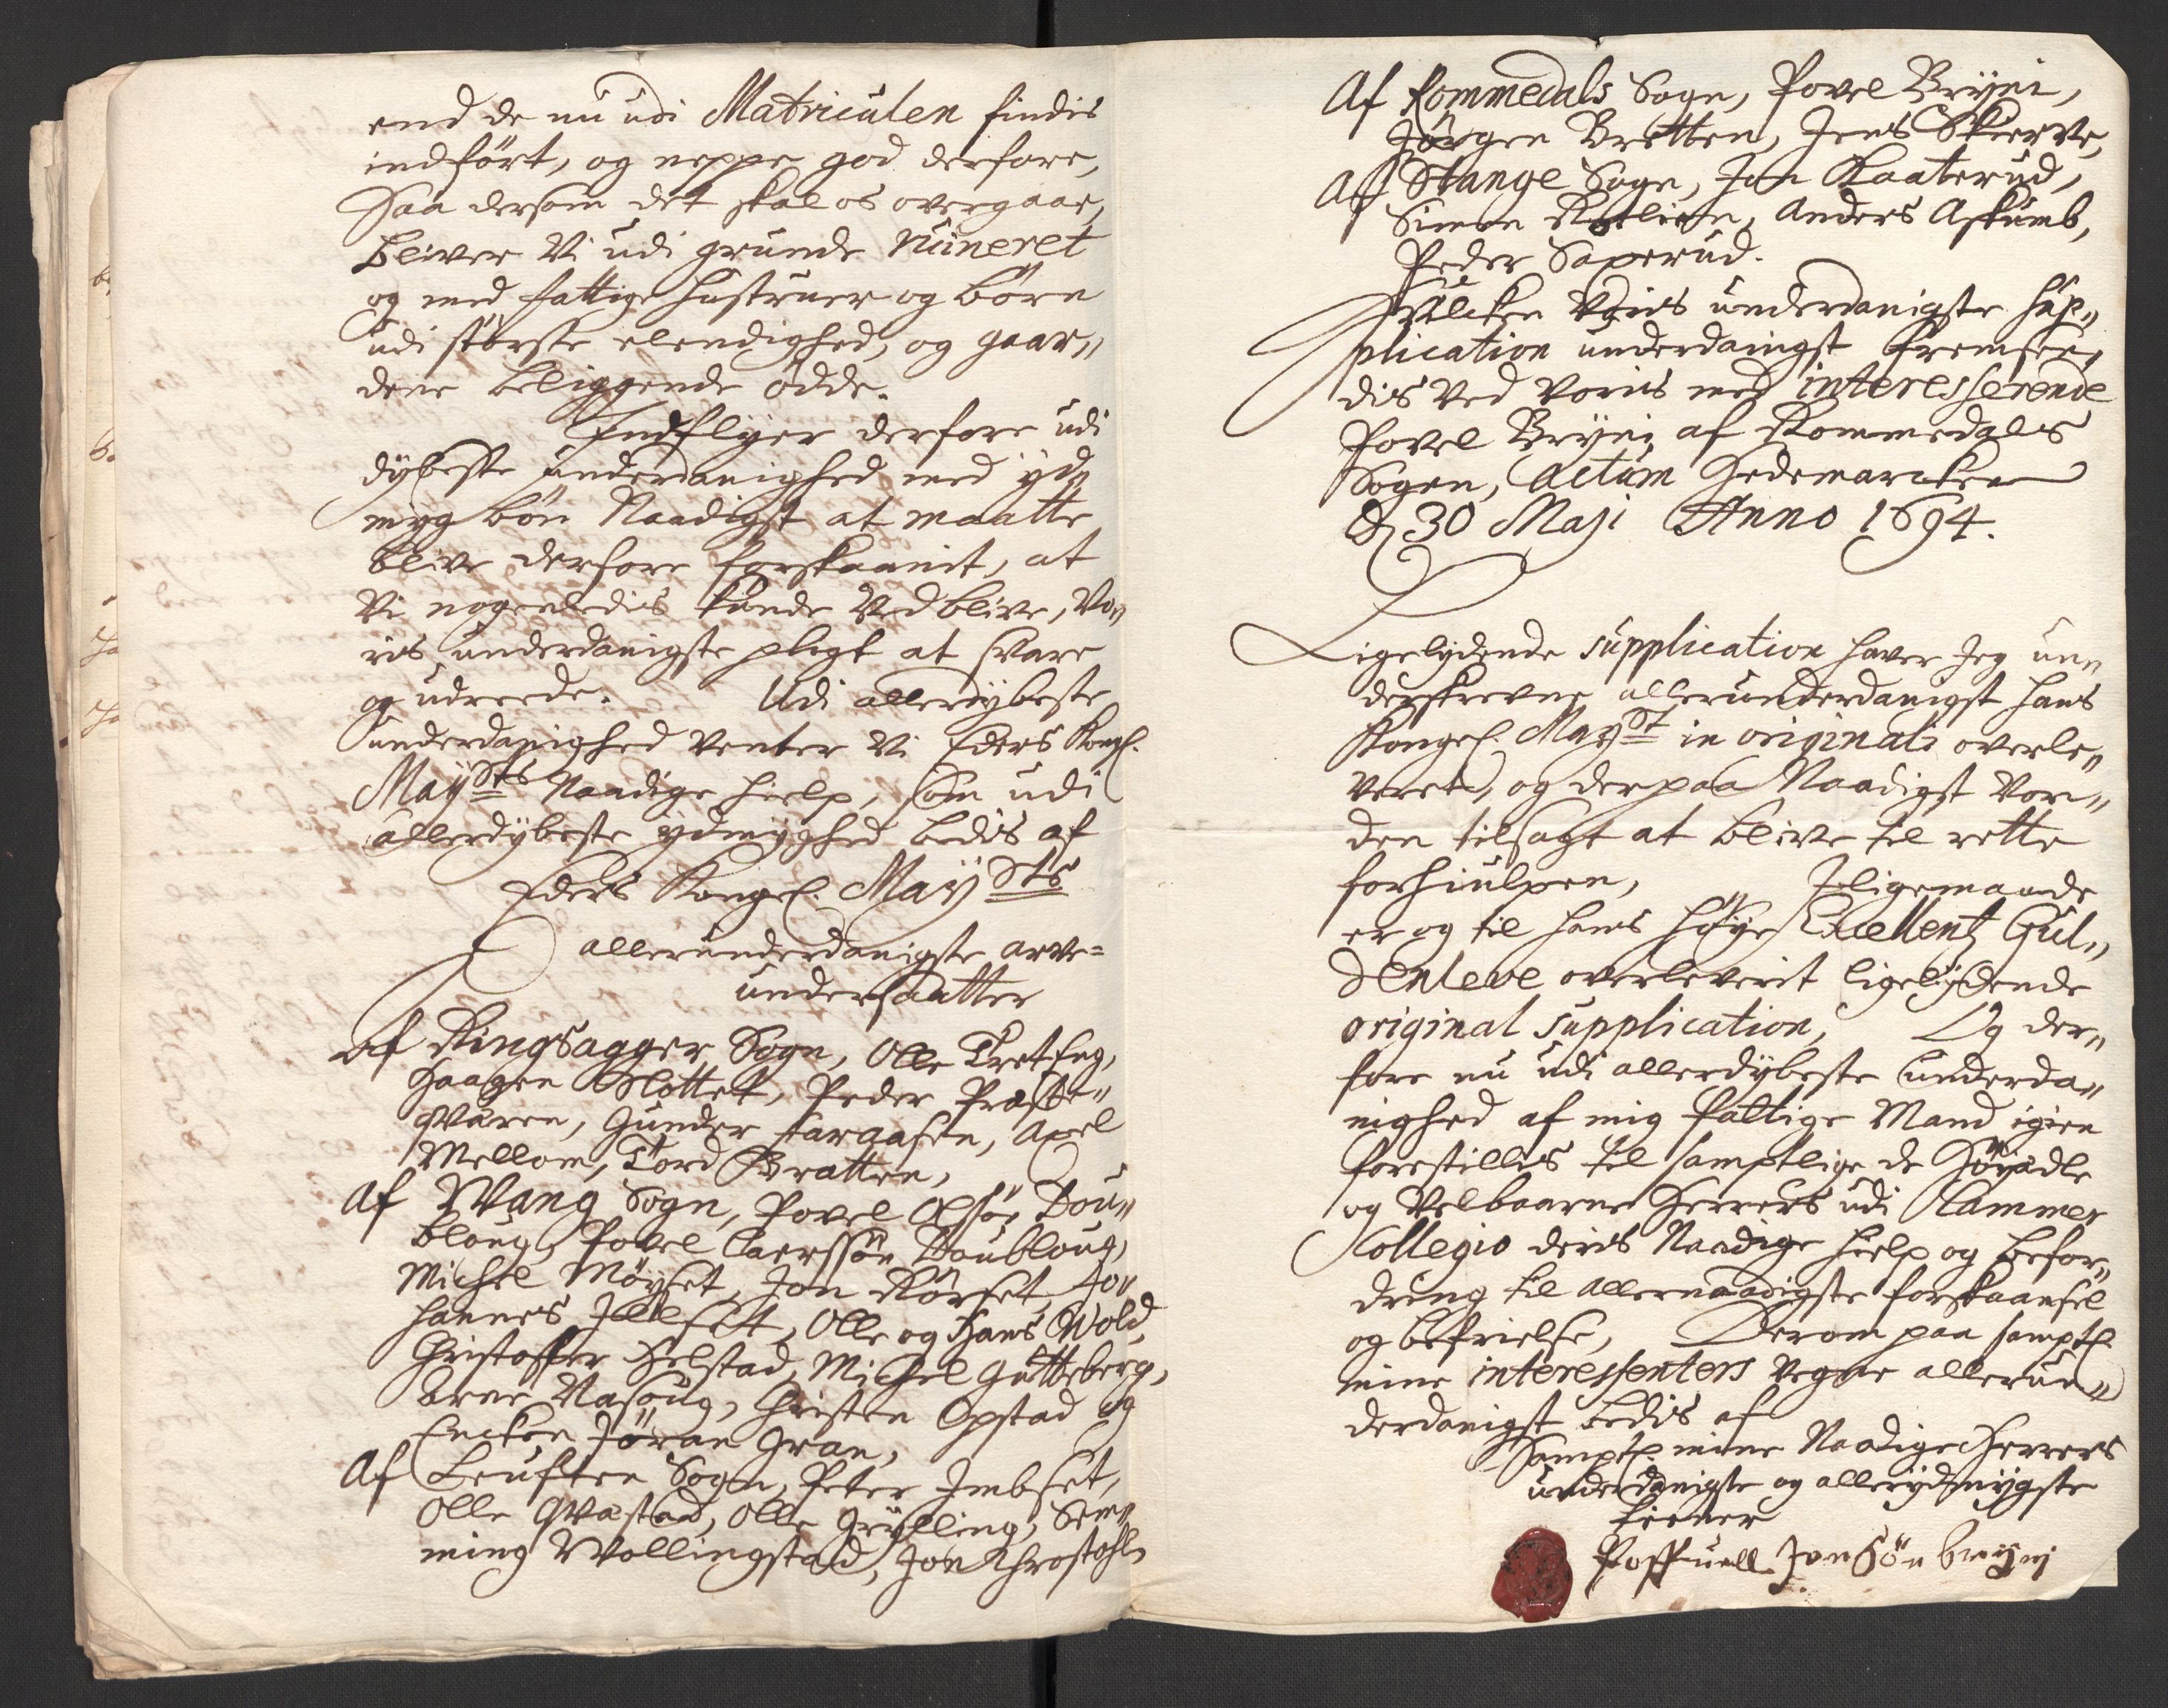 end de nu udi Matriculen findis
indført, og neppe god derfore,
Saa dersom det skal os overgaae,
bliver Vi udi grunde Ruineret
og med fattige Hustruer og børn
udi største elendighed, og gaar„
dene beliggende ødde.
Indflyer derfore udi
dybeste underdanighed med yd„
myg bøn Naadigst at maatte
blive derfore forskaanit, at
Vi nogenledis kunde Ved blive, Vo„
ris underdanigste pligt at svare
og udreede. Udi allerdybeste
underdanighed venter Vi Eders Kongl.
Maysts Naadige hielp, som udi
allerdybeste ydmyghed bedis af
Eders Kongel. Maysts
allerunderdanigste arve=
undersaatter
Af Ringsagger Sogn, Olle Tret Eng,
Haagen Slottet, Peder Præste„
qværen, Gunder Faraasen, Axel
Mellom, Tord Bratten,
Af Wang Sogn, Povel Olsøn Dou„
bloug, Povel Laerssøn Doubloug,
Michel Møyset, Jon Kørset, Jo„
hannes Illset, Olle og Hans Wold,
Christoffer Selstad, Michel Gutteberg,
Arne Nasoug, Christen Opstad og
Encken Jøran Gran,
Af Leuften Sogn, Peter Imbset,
Olle Qvæstad, Olle Gryfling, Sem„
ming Wollingstad, Jon
Af Rommedals Sogn, Povel Bryni,
Jørgen Bretten, Jens Skierve,
Af Stange Sogn, Jon Kaaterud,
Simen Rotlien, Anders Askumb,
Peder Saxerud.
Hvilcken Voris underdanigste Sup„
plication underdanigst fremsen„
dis Ved Voris med interesserende
Povel Bryni af Rommedals
Sogen, Actum Hedemarcken
d 30 Maji Anno 1694.
Ligelydende supplication haver Jeg un„
derskrevne allerunderdanigst Hans
Kongel. Mayst in originali overle„
veret, og derpaa Naadigst Vor„
den tilsagt at blive til rette
forhiulpen, Iligemaade
er og til Hans Høye Excellentz Gül„
denleve overleverit ligelydende
original supplication, Og der„
fore nu udi allerdybeste underda„
nighed af mig fattige Mand igien
forestillis til samptlige de Høyædle
og Velbaarne Herrers udi Kammer
Collegio deris Naadige hielp og befor„
dring til allernaadigste forskaansel
og befrielse, Derom paa samptl.
mine interessenters vegne allerun„
derdanigst bedis af
Samptl. mine Naadige Herrers
underdanigste og allerydmygste
tienner
Poffuell JonSøn bryni